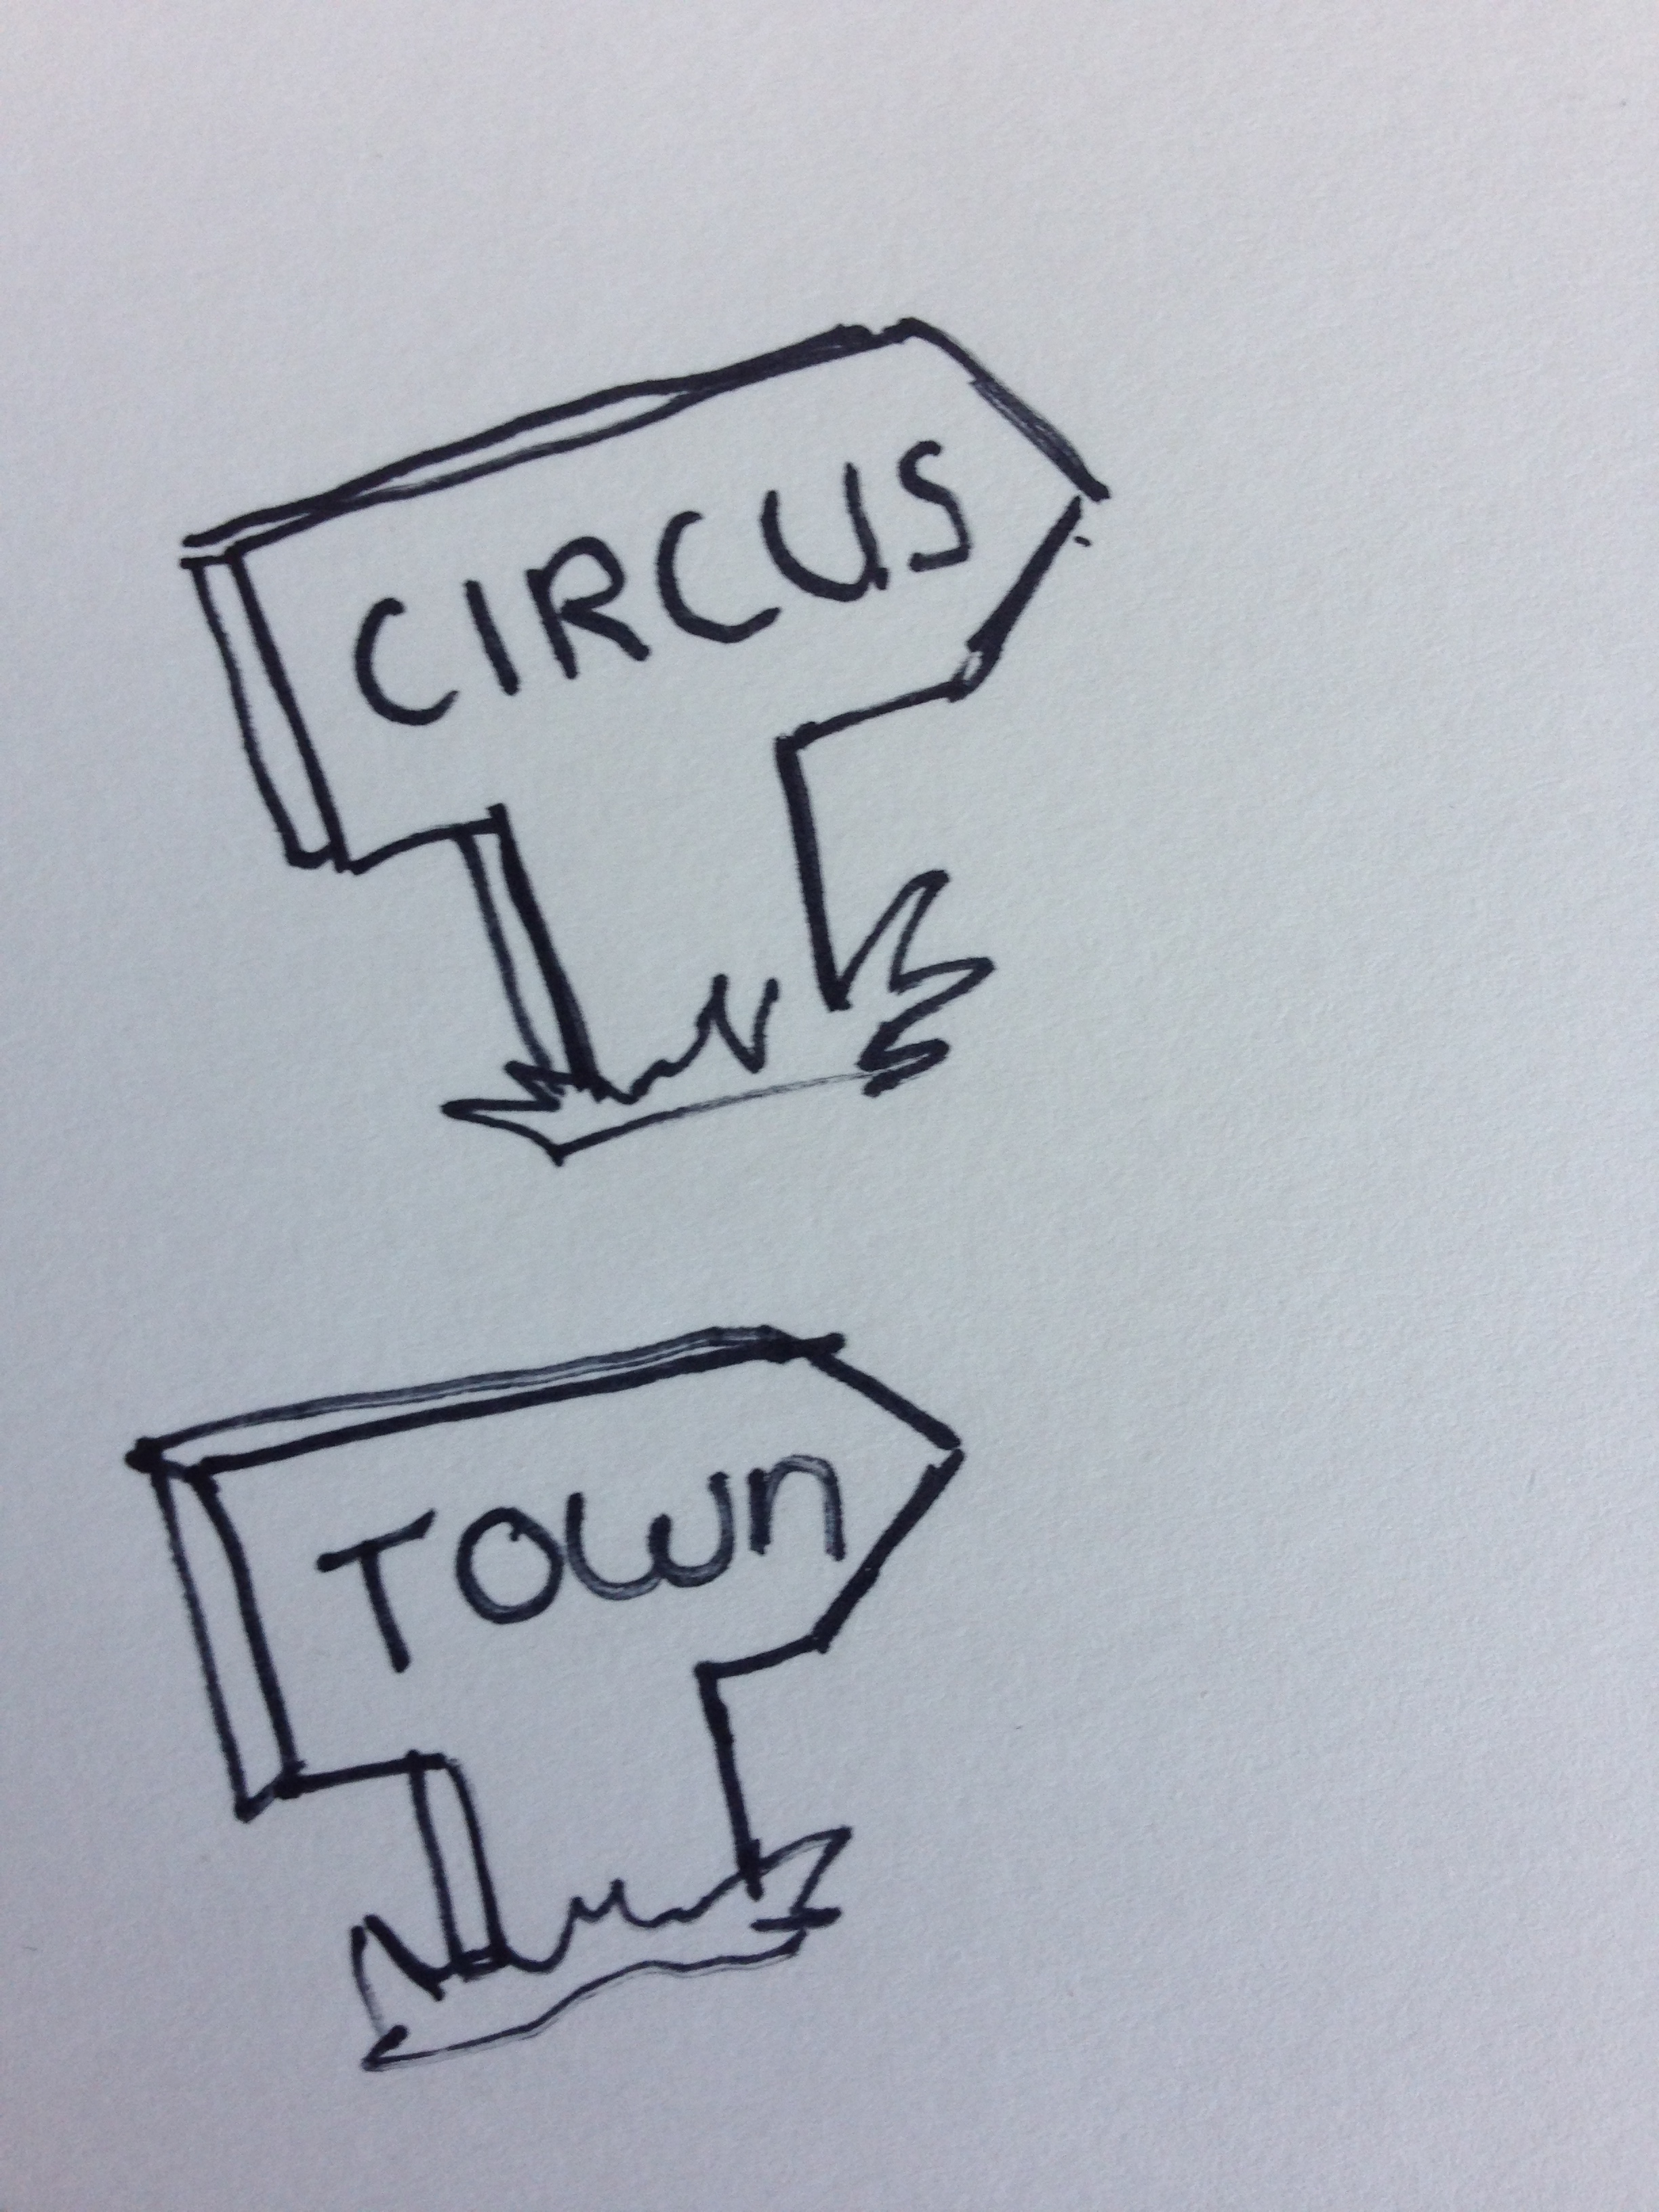 CIRCUS
TOWn